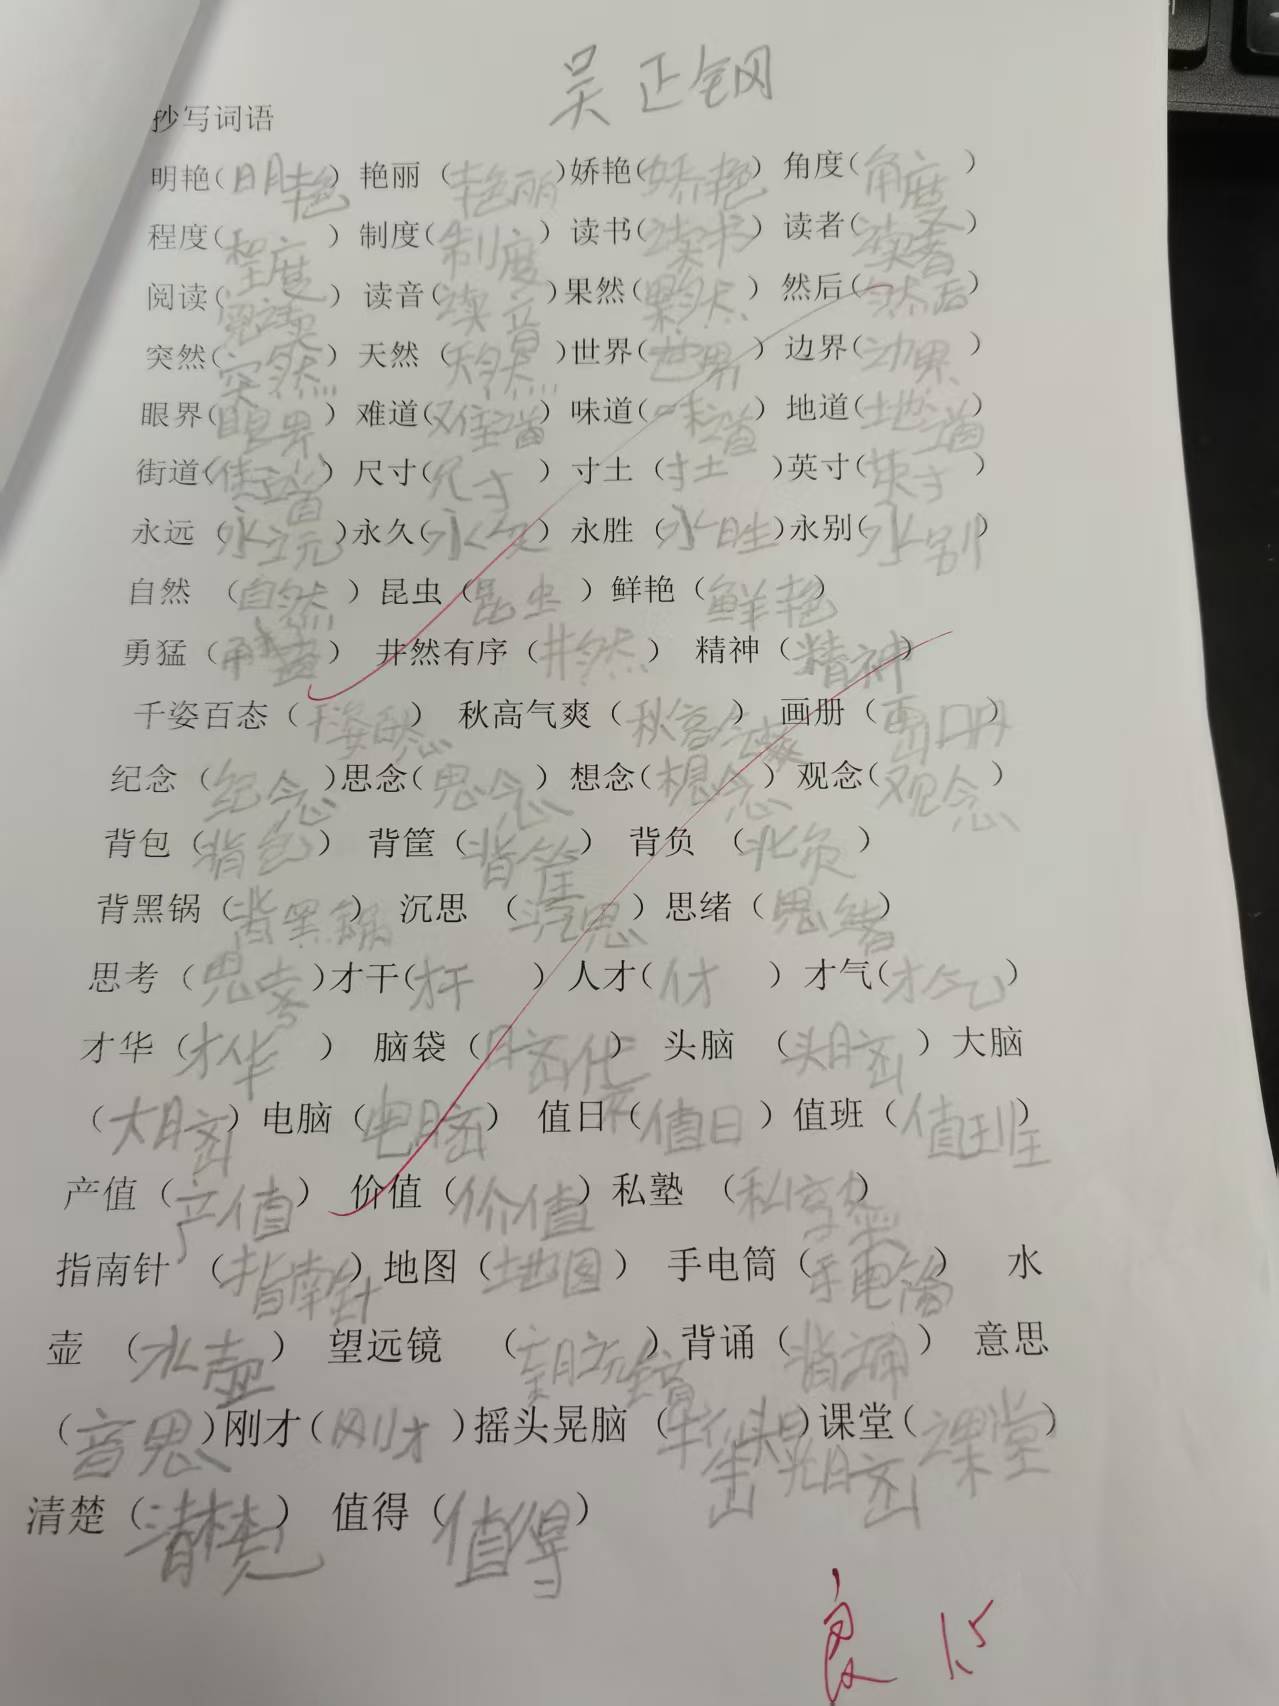 吴正钢
抄写词语
明艳（明艳）艳丽（艳丽）娇艳（娇艳）角度（角度）
程度（程度）制度（制度）读书（读书）读者（读者）
阅读（阅读）读音（读音）果然（果然）然后（然后）
突然（突然）天然（天然）世界（世界）边界（边界）
眼界（眼界）难道（难道）味道（味道）地道（地道）
街道（街道）尺寸（尺寸）寸土（寸土）英寸（英寸）
永远（永远）永久（永久）永胜（永胜）永别（永别）
自然（自然）昆虫（昆虫）鲜艳（鲜艳）
勇猛（勇猛）井然有序（井然）精神（精神）
千姿百态（千姿百态）秋高气爽（秋高气爽）画册（画册）
纪念（纪念）思念（思念）想念（想念）观念（观念）
背包（背包）背筐（背筐）背负（北负）
背黑锅（背黑锅）沉思（思）思绪（思绪）
思考（思考）才干（才干）人才（人才）才气（才气）
才华（才华）脑袋（脑袋）头脑（头脑）大脑
（大脑）电脑（电脑）值日（值日）值班（值班）
产值（产值）价值（价值）私塾（私塾）
指南针（指南针）地图（地图）手电筒（手电筒）水
壶（水壶）望远镜（望远镜）背诵（背诵）意思
（音思）刚才（刚才）摇头晃脑（头晃脑）课堂（课堂）
清楚（清楚）值得（值得）
良 1.5